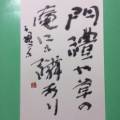 門禮や草の
庵にも隣あり